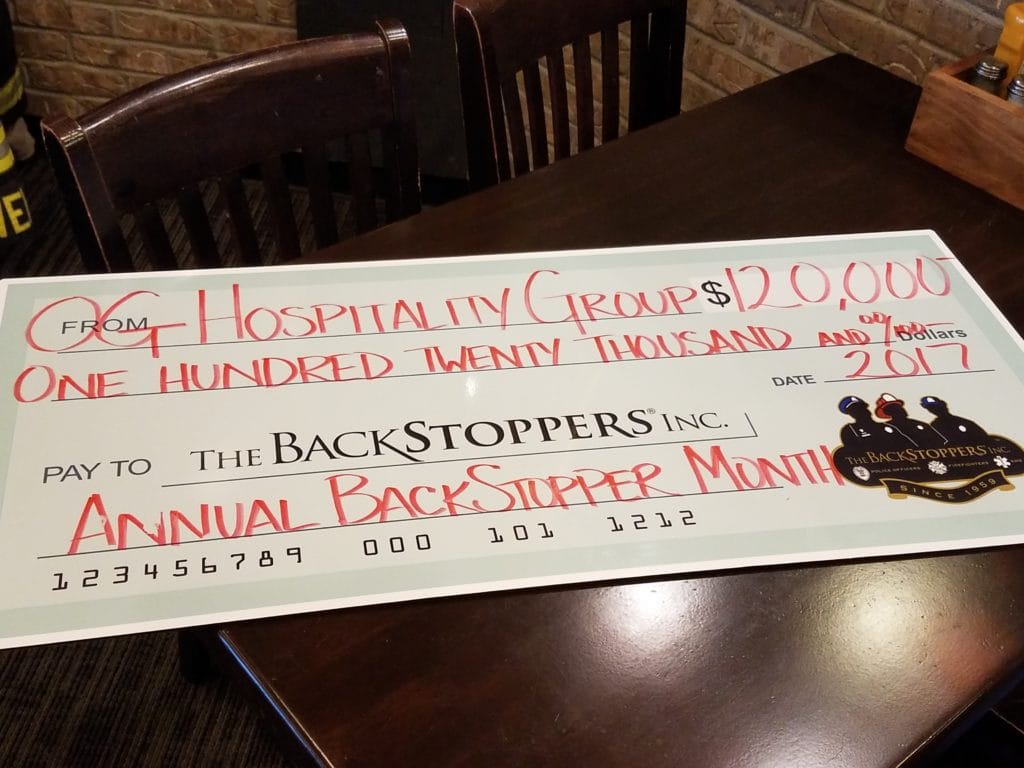 FROM OG HOSPITALITY GROUP $ 120,000
ONE HUNDRED TWENTY THOUSAND AND 00/100 Dollars
DATE 2017
PAY TO THE BACKSTOPPERS® INC.
ANNUAL BACKSTOPPER MONTH
123456789 000 101 1212
THE BACKSTOPPERS INC
POLICE OFFICERS FIREFIGHTERS
SINCE 1959